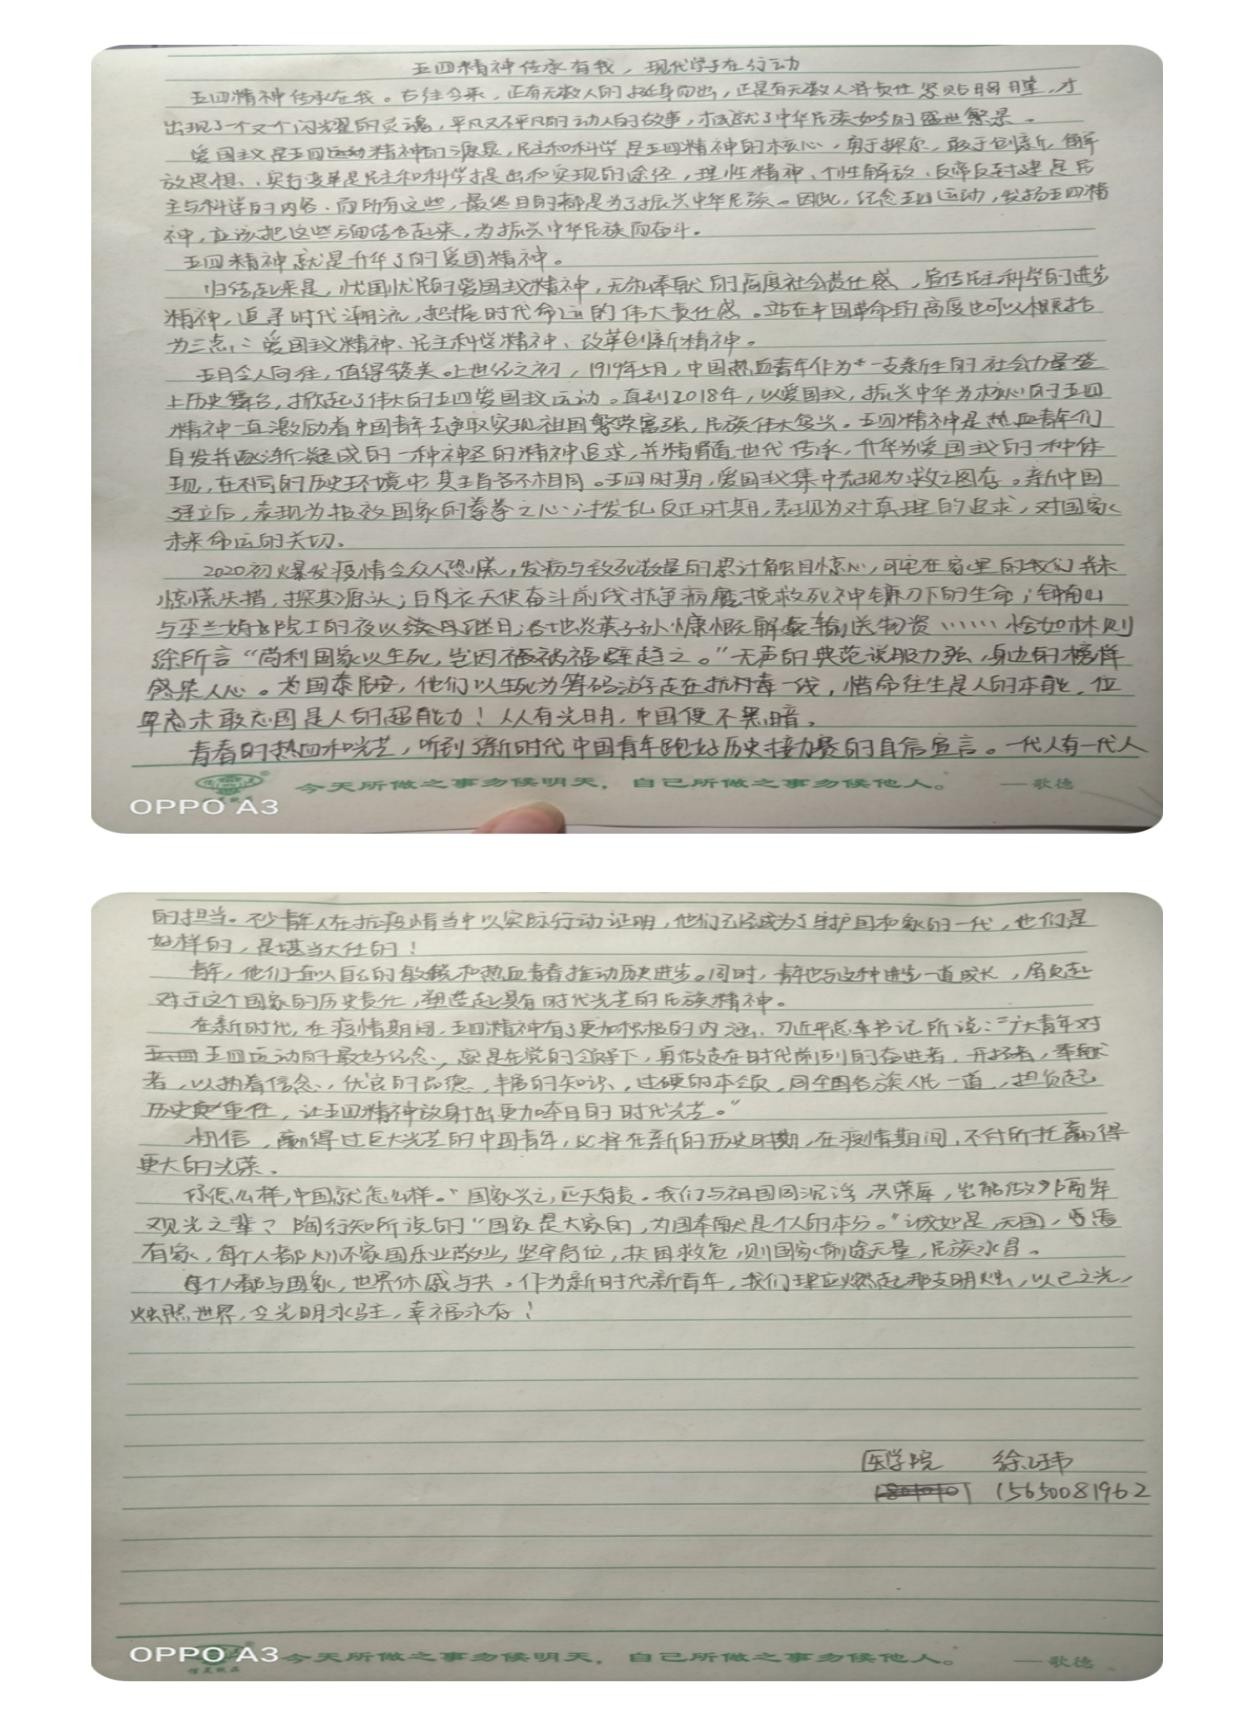 五四精神传承有我，现代学子在行动
五四精神传承在我。古往今来，正有无数人的挺身而出，正是有无数人将责任紧贴胸膛，才
出现了一个又一个闪耀的灵魂，平凡又不平凡的动人的故事，才成就了中华民族如今的盛世繁景。
爱国主义是五四运动精神的源泉，民主和科学是五四精神的核心，勇于探索，敢于创新，解
放思想、实行变革是民主和科学提出和实现的途径，理性精神、个性解放、反帝反封建是民
主与科学的内容。而所有这些，最终目的都是为了振兴中华民族。因此，纪念五四运动，发扬五四精
神，应该把这些方面结合起来，为振兴中华民族而奋斗。
五四精神就是升华了的爱国精神。
归结起来是，忧国忧民的爱国主义精神，无私奉献的高度社会责任感，宣传民主科学的进步
精神，追寻时代潮流，把握时代命运的伟大责任感。站在中国革命的高度也可以概括
为三点：爱国主义精神、民主科学精神、改革创新精神。
五月令人向往，值得赞美。上世纪之初，1919年5月，中国热血青年作为一支新生的社会力量登
上历史舞台，掀起了伟大的五四爱国主义运动。直到2018年，以爱国主义，振兴中华为核心的五四
精神一直激励着中国青年去争取实现祖国繁荣富强，民族伟大复兴。五四精神是热血青年们
自发并逐渐凝成的一种神圣的精神追求，并精髓世代传承，升华为爱国主义的一种体
现，在不同的历史环境中其主旨各不相同。五四时期，爱国主义集中表现为救亡图存。新中国
建立后，表现为报效国家的拳拳之心；拨乱反正时期，表现为对真理的追求，对国家
未来命运的关切。
2020初爆发疫情令众人恐慌，发病与致死数量的累计触目惊心，可宅在家里的我们并未
惊慌失措，探其源头；白衣天使奋斗前线抗争病魔挽救死神镰刀下的生命；钟南山
与李兰娟院士的夜以继日；各地炎黄子孙慷慨解囊输送物资……恰如林则
徐所言“苟利国家以生死，岂因祸福避趋之。”无声的典范说服力强，身边的榜样
感染人心。为国泰民安，他们以生死为筹码游走在抗病毒一线，惜命往生是人的本能，位
卑态未敢忘国是人的超能力！人人有光明，中国便不黑暗。
青春的热血和光芒，听到了新时代中国青年跑好历史接力赛的自信宣言。一代人有一代人
今天所做之事勿候明天，自己所做之事勿候他人。 ——歌德
OPPO A3
的担当。不少青年人在抗疫情当中以实际行动证明，他们已经成为了守护国和家的一代，也们是
好样的，是堪当大任的！
青年，他们一直以自己的敏锐和热血青春推动历史进步。同时，青年也与这种进步一道成长，肩负起
对于这个国家的历史责任，塑造起具有时代光芒的民族精神。
在新时代，在疫情期间，五四精神有了更加积极的内涵，习近平总书记所说：“广大青年对
五四运动的最好纪念，就是在党的领导下，勇做走在时代前列的奋进者，开拓者，奉献
者，以执着信念、优良的品德，丰富的知识，过硬的本领，同全国各族人民一道，担负起
历史重任，让五四精神放射出更加夺目的时代光芒。”
相信，赢得过巨大光芒的中国青年，必将在新的历史时期，在疫情期间，不付所托赢得
更大的光荣。
你怎么样，中国就怎么样。“国家兴亡，匹夫有责。我们与祖国同沉浮，共荣辱，岂能做隔岸
观光之辈？陶行知所说的“国家是大家的，为国奉献是个人的本分。”诚如是，无国，焉
有家，每个人都为家国乐业敬业，坚守岗位，扶困救危，则国家前途无量，民族永昌。
每个人都与国家，世界休戚与共。作为新时代新青年，我们理应燃起那支明烛，以己之光，
烛照世界，令光明永驻，幸福永存！
医学院 徐
15650081962
OPPO A3
今天所做之事勿候明天，自己所做之事勿候他人。 ——歌德